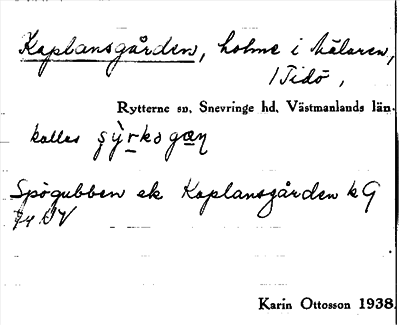 Kaplansgården, holme i Mälaren,
/Tidö,
Rytterne sn. Snevringe hd. Västmanlands län.
kallas
Spögubben ek Kaplansgården k G
74 NV
Karin Ottosson 1938